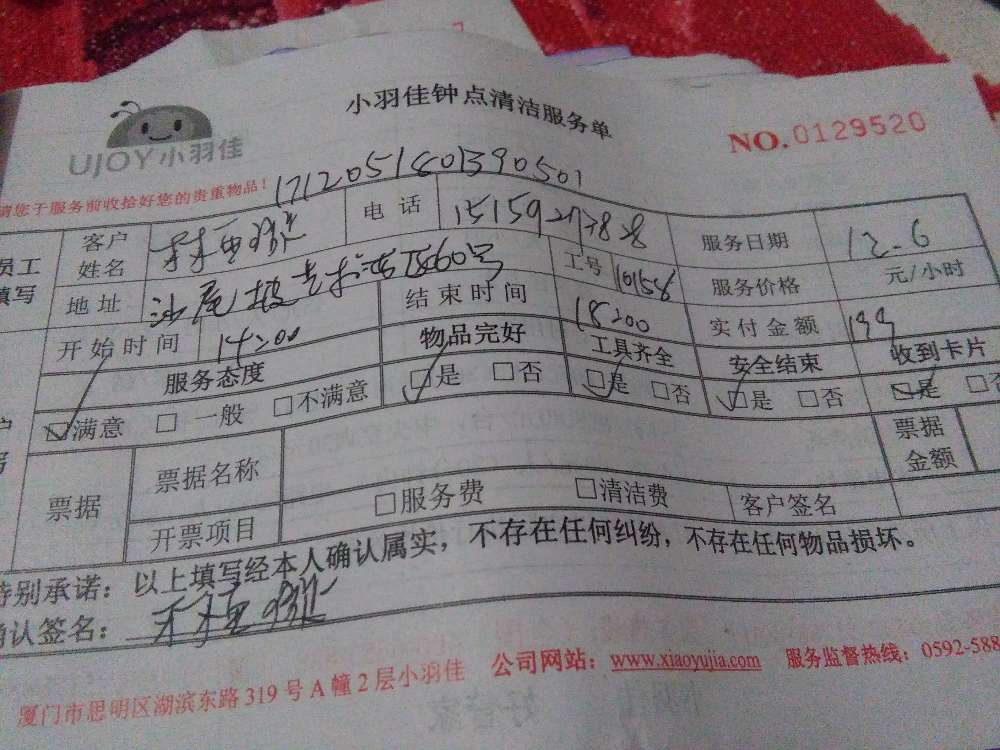 小羽佳钟点清洁服务单
UJOY小羽佳
NO.0129520
请您于服务前收拾好您的贵重物品!
1712051801390501
员工
填写
客户
姓名
电话
服务日期 12.6
地址
工号 10158
服务价格 元/小时
开始时间 14:00
结束时间 18:00
实付金额 199
服务态度
物品完好
工具齐全
安全结束
收到卡片
☑满意 □一般 □不满意
☑是 □否
☑是 □否
☑是 □否
☑是 □否
票据
票据名称
票据
金额
开票项目
□服务费 □清洁费
客户签名
特别承诺:以上填写经本人确认属实,不存在任何纠纷,不存在任何物品损坏。
确认签名:
厦门市思明区湖滨东路319号A幢2层小羽佳 公司网站:www.xiaoyujia.com 服务监督热线:0592-588